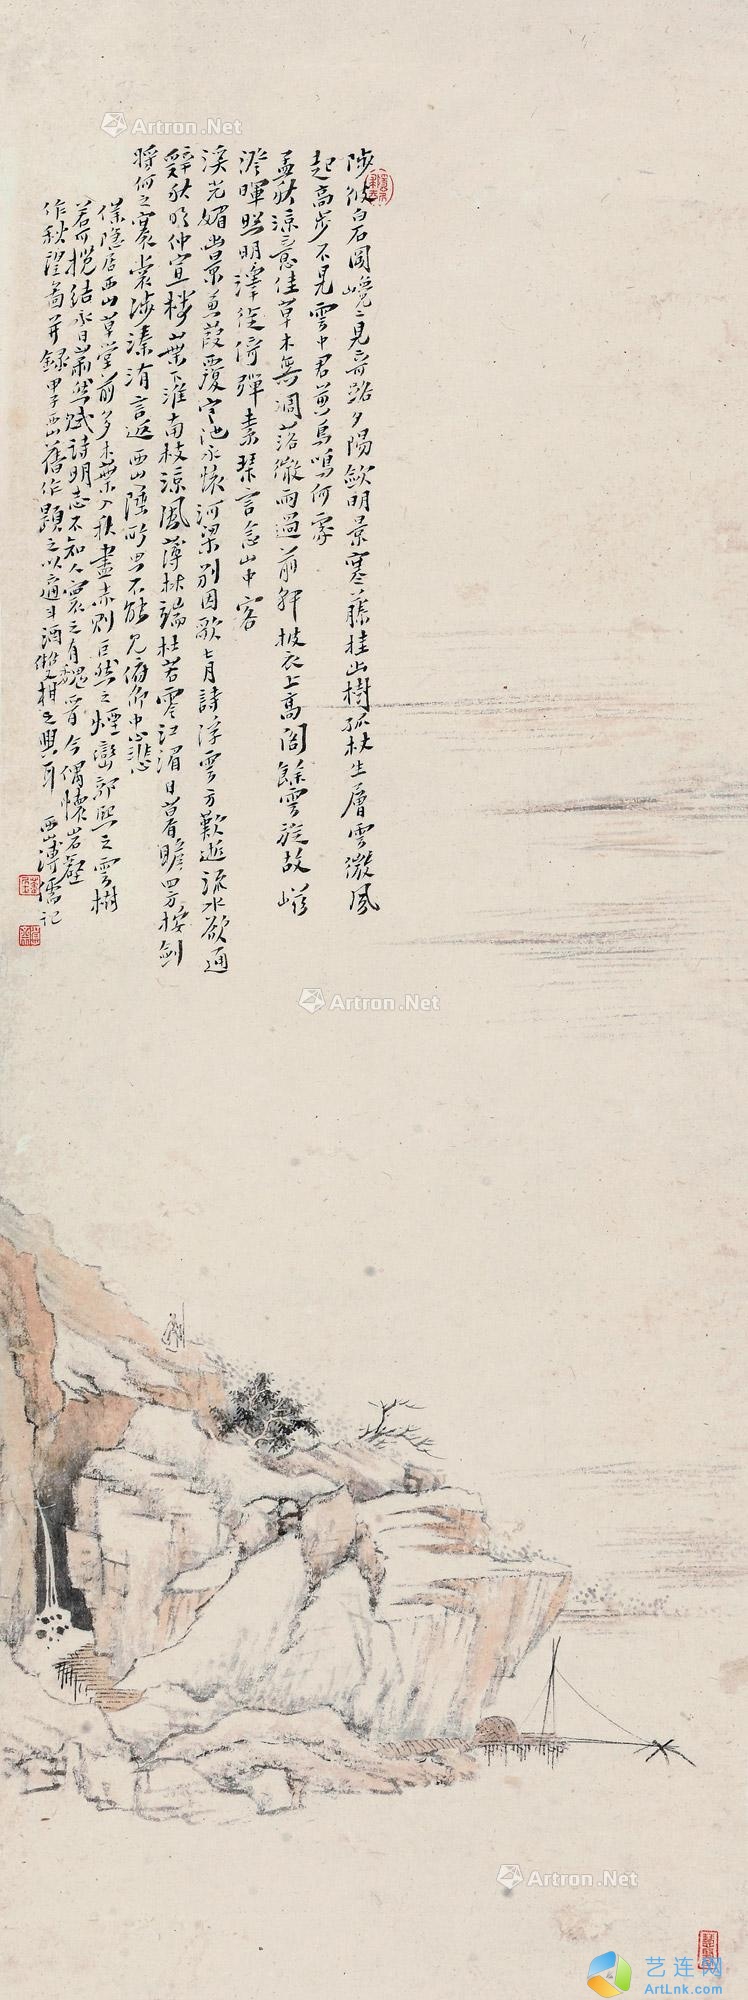 陟彼白石岡巉巉見奇路夕陽歛明景寒藤挂山樹孤杖生層雲微風
起高步不見雲中君萬鳥鳴何處
孟秋涼意佳草木無凋落微雨過前軒披衣上高閣餘雲旋故嶂
澄暉照明澤從倚彈素琴言念山中客
溪光媚幽景蒹葭覆寒池永懷河梁別因歌七月詩浮雲方歎逝流水欲通
辭秋登仲宣樓葉下淮南枝涼風薄林端杜若零江湄日暮瞻四方按劍
將何之褰裳涉溱洧言返西山陲所思不能見俯仰中心悲
僕隱居西山草堂前多木葉入秋盡赤則巨然之煙巒郭熙之雲樹
若可攬結永日蕭然賦詩明志不知人寰之有魏晉今偶懷岩壑
作秋望圖并錄甲子西山舊作題之以適斗酒雙柑之興耳 西山溥儒記
Artron.Net
Artron.Net
Artron.Net
艺连网
ArtLnk.com